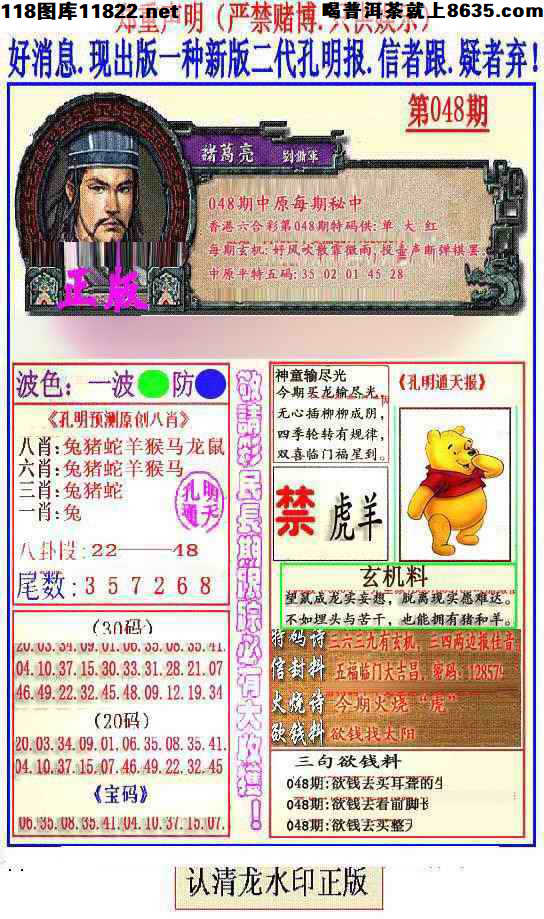 118图库11822.net
喝普洱茶就上8635.com
好消息.现出版一种新版二代孔明报.信者跟.疑者弃!
第048期
諸葛亮 劉備軍
048期中原每期秘中
香港六合彩第048期特码供:单 大 红
中原平特五码:35 02 01 45 28
正版
波色:一波 防
《孔明预测原创八肖》
八肖:兔猪蛇羊猴马龙鼠
六肖:兔猪蛇羊猴马
三肖:兔猪蛇
一肖:兔
孔明通天
八卦段:22——48
尾数:357268
(30码)
20.03.34.09.01.06.35.08.35.41
04.10.37.15.30.33.31.28.21.07
46.49.22.32.45.48.09.12.19.34
(20码)
20.03.34.09.01.06.35.08.35.41.
04.10.37.15.07.46.49.22.32.45
《宝码》
06.35.08.35.41.04.10.37.15.07.
神童输尽光
今期买龙输尽光,
无心插柳柳成阴,
四季轮转有规律,
双喜临门福星到。
《孔明通天报》
禁 虎羊
玄机料
望鼠成龙实妄想,脱离现实愿难达。
不如埋头与苦干,也能拥有猪和羊。
特码诗 三六三九有玄机,三四两边报佳音
信封料 五福临门大吉昌,密码:12857
火烧诗 今期火烧“虎”
欲钱料 欲钱找太阳
三句欲钱料
048期:欲钱去买耳聋的
048期:欲钱去看前脚
048期:欲钱去买整
认清龙水印正版